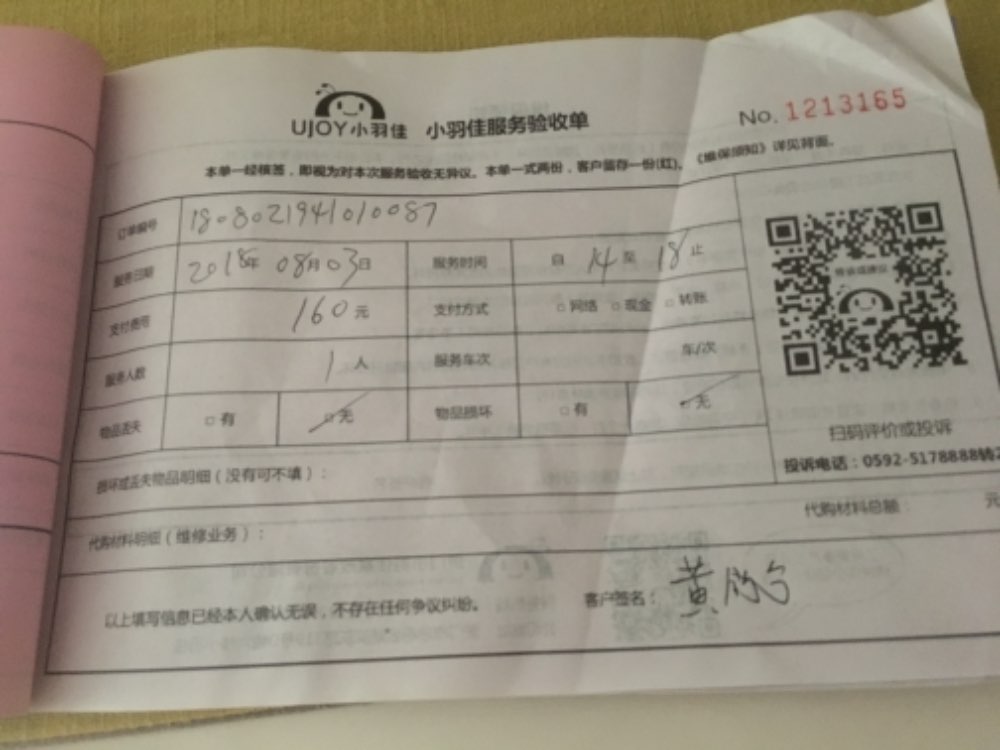 UJOY小羽佳 小羽佳服务验收单
No. 1213165
本单一经核签，即视为对本次服务验收无异议。本单一式两份，客户留存一份(红)。《维保须知》详见背面。
订单编号 1808021941010087
服务日期 2018年 08月 03日 服务时间 自 14 至 18 止
支付费用 160 元 支付方式 □ 网络 □ 现金 □ 转账
服务人数 1 人 服务车次 车/次
物品丢失 □ 有 □ 无 物品损坏 □ 有 □ 无
扫码评价或投诉
投诉电话：0592-5178888转2
损坏或丢失物品明细（没有可不填）：
代购材料明细（维修业务）： 代购材料总额： 元
以上填写信息已经本人确认无误，不存在任何争议纠纷。 客户签名： 黄